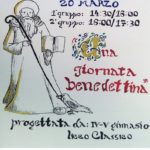 20 MARZO
1° gruppo: 14:30/16:00
2° gruppo: 16:00/17:30
Una
giornata
benedettina
progettata da: IV-V ginnasio
liceo Classico